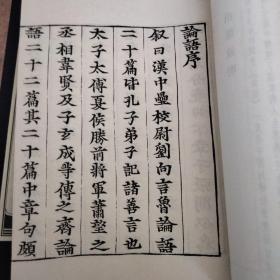 論語序
叙曰漢中壘校尉劉向言魯論語
二十篇皆孔子弟子記諸善言也
太子太傅夏侯勝前將軍蕭望之
丞相韋賢及子玄成等傳之齊論
語二十二篇其二十篇中章句頗